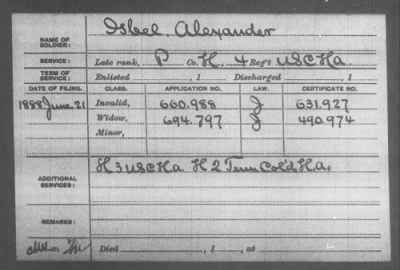 NAME OF SOLDIER: Isbel, Alexander
SERVICE: Late rank, P Co. H, 4 Reg't USCHa
TERM OF SERVICE: Enlisted , 1 Discharged , 1
DATE OF FILING. CLASS. APPLICATION NO. LAW. CERTIFICATE NO.
1888 June 21 Invalid, 660.988 J 631.927
Widow, 694.797 J 490.974
Minor,
ADDITIONAL SERVICES: H 3 USCHa H 2 Tenn Col'd Ha,
REMARKS:
Died , 1 , at